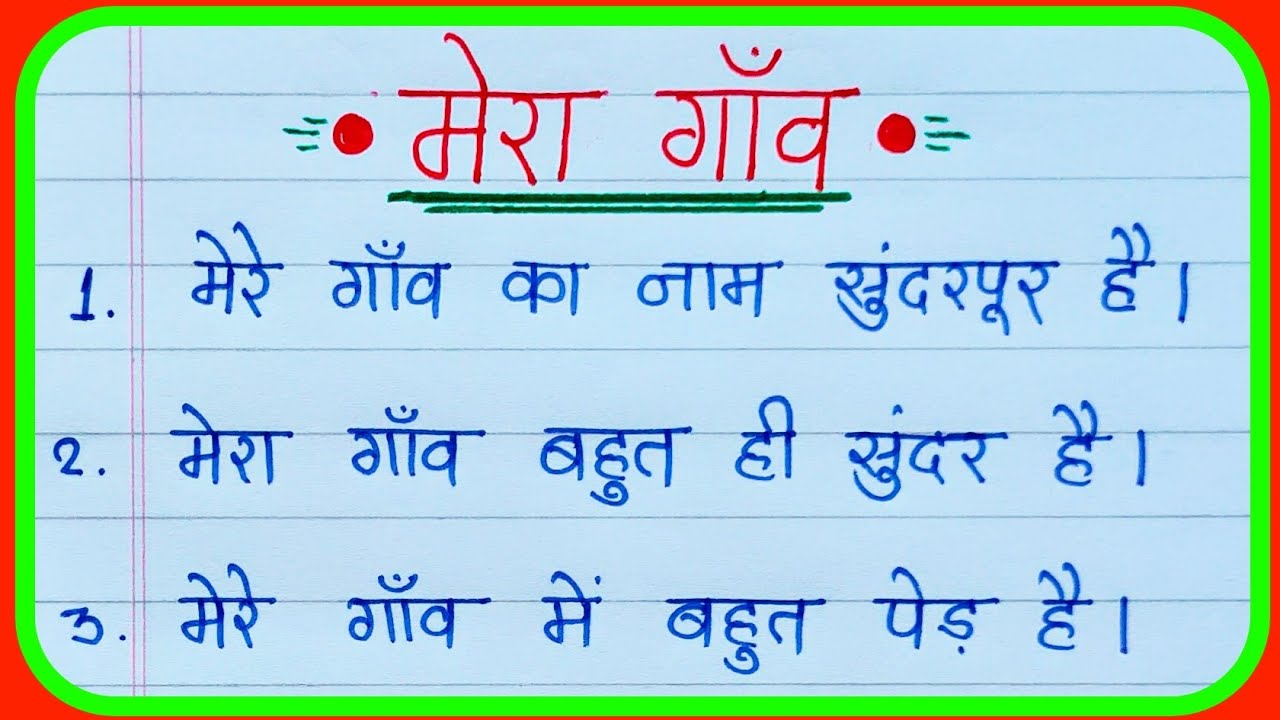 मेरा गाँव
1. मेरे गाँव का नाम सुंदरपूर है।
2. मेरा गाँव बहुत ही सुंदर है।
3. मेरे गाँव में बहुत पेड़ है।